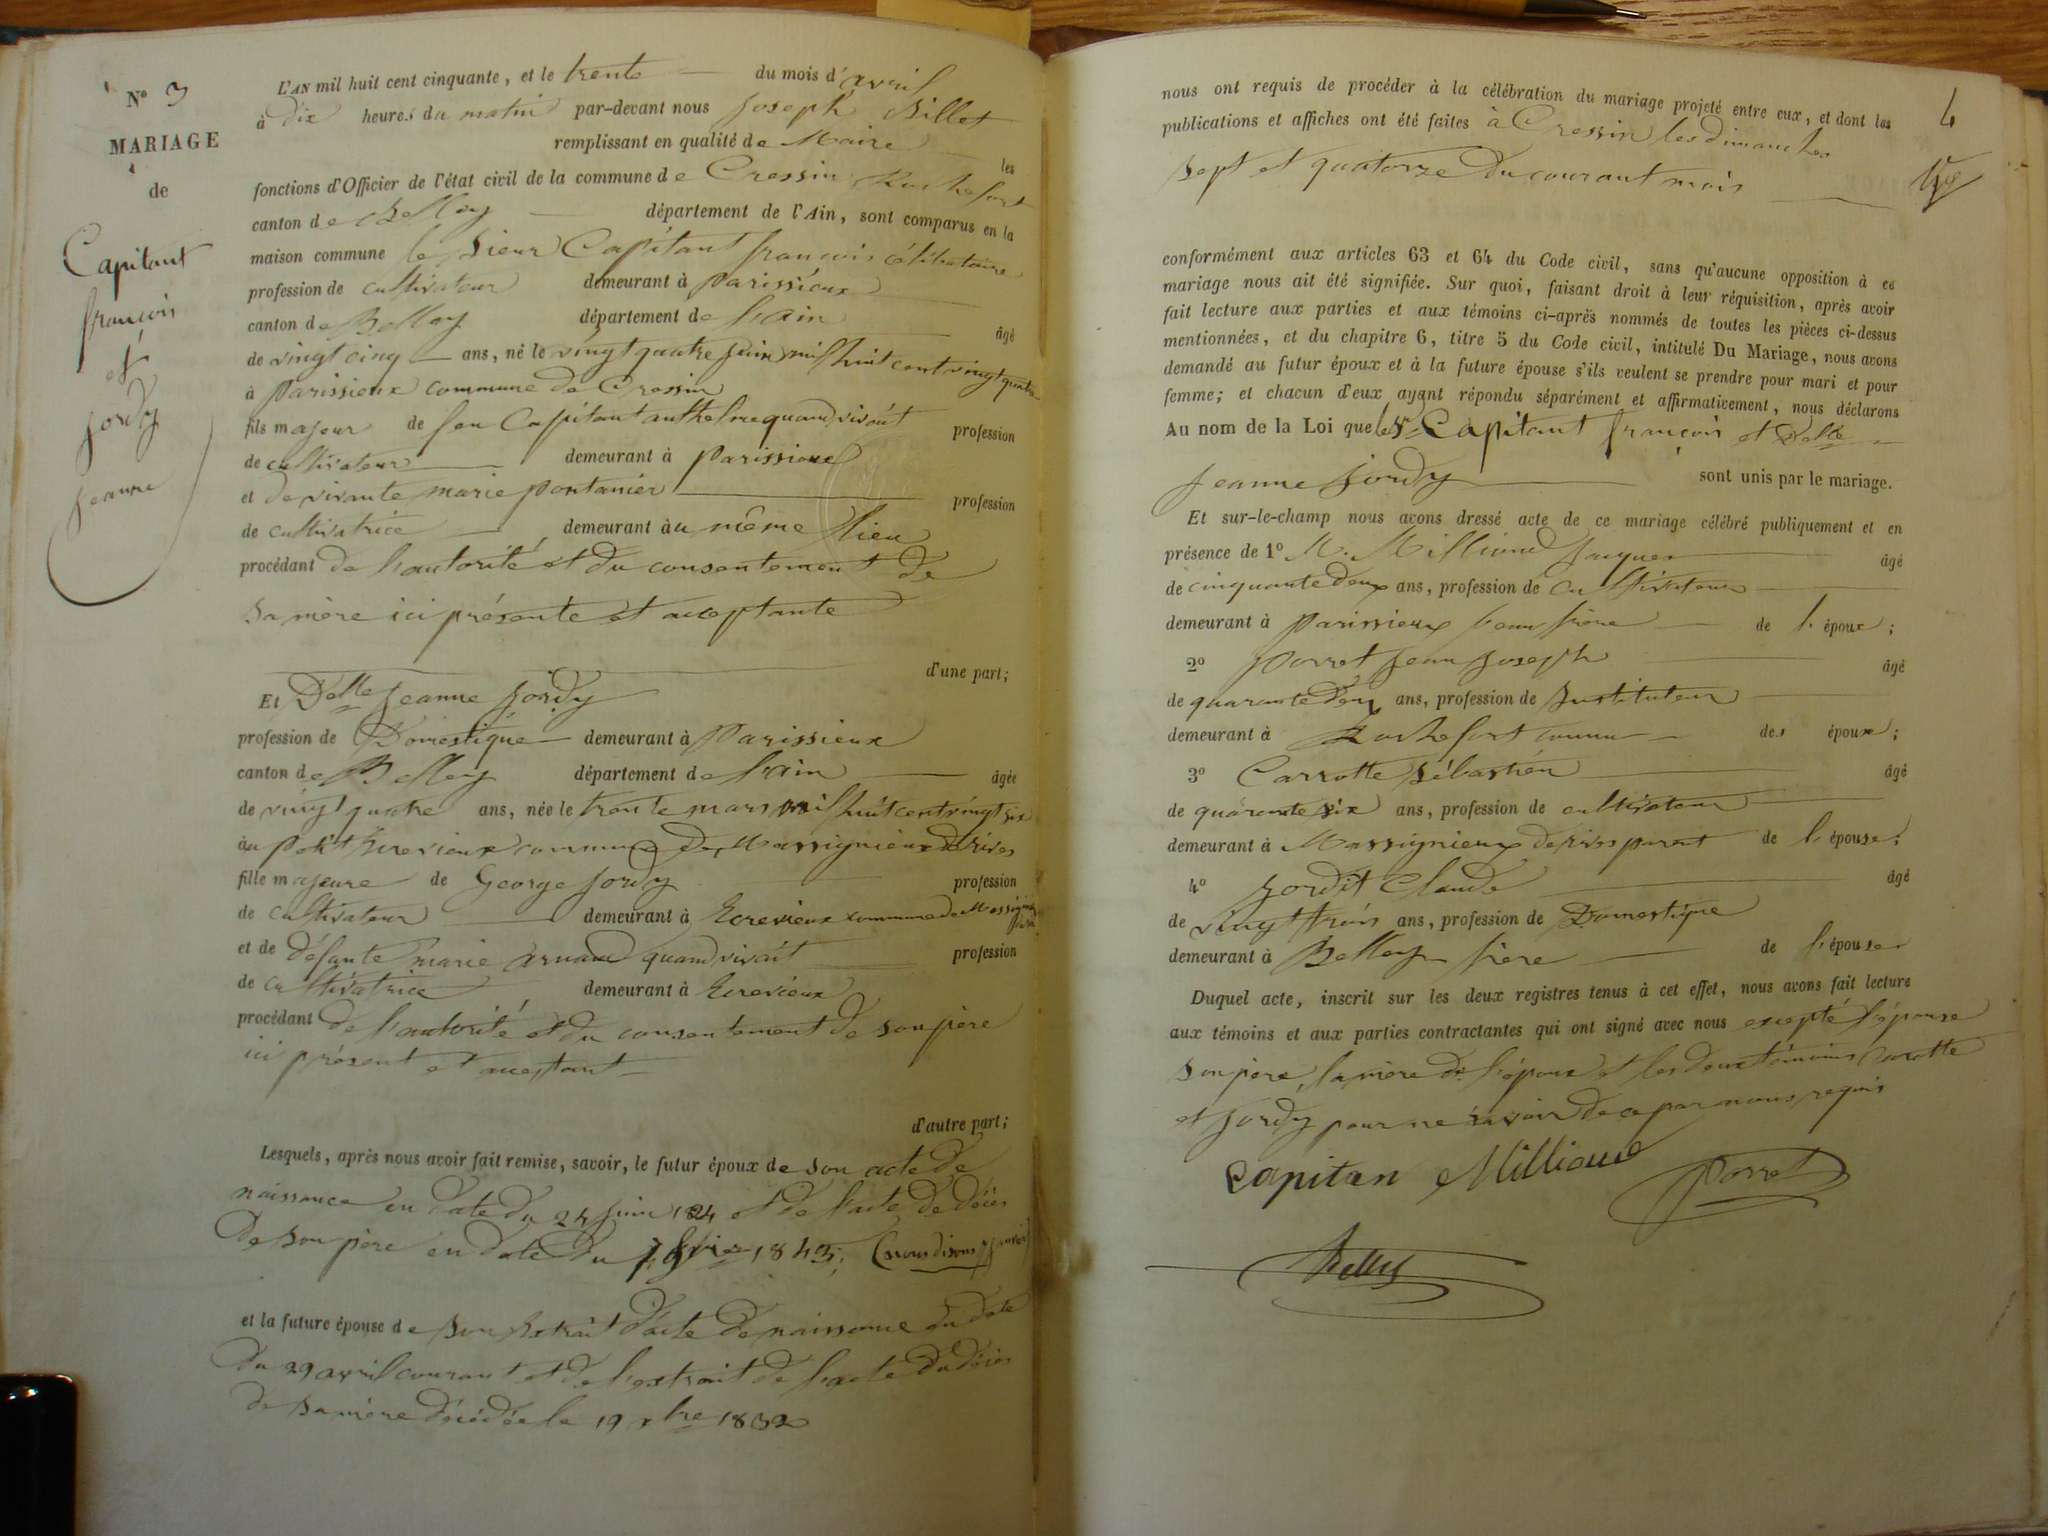 N° 3
MARIAGE
de
Capitant
françois
et
Jordy
Jeanne
L'AN mil huit cent cinquante, et le trente du mois d'avril
à dix heures du matin par-devant nous Joseph Billet
remplissant en qualité de Maire les
fonctions d'Officier de l'état civil de la commune de Cressin Rochefort
canton de Belley département de l'Ain, sont comparus en la
maison commune le Sieur Capitant françois célibataire
profession de cultivateur demeurant à Parissieux
canton de Belley département de l'ain âgé
de vingt cinq ans, né le vingt quatre Juin mil huit cent vingt quatre
à Parissieux commune de Cressin
fils majeur de feu Capitant anthelme quand vivait profession
de cultivateur demeurant à Parissieux
et de vivante marie pontanier profession
de cultivatrice demeurant àu même lieu
procédant de l'autorité et du consentement de
sa mère ici présente et acceptante
d'une part;
Et Delle Jeanne Jordy
profession de Domestique demeurant à Parissieux
canton de Belley département de l'ain âgée
de vingt quatre ans, née le trente mars mil huit cent vingt six
àu petit Ecrevieux commune de Massignieux de rives
fille majeure de George Jordy profession
de cultivateur demeurant à Ecrevieux commune de Massignieu
et de défunte marie arnaud quand vivait profession
de cultivatrice demeurant à Ecrevieux
procédant de l'autorité et du consentement de son père
ici présent et acceptant
d'autre part;
Lesquels, après nous avoir fait remise, savoir, le futur époux de son acte de
naissance en date du 24 juin 1824 et de l'acte de décès
de son père en date du 1843; (nous disons janvier)
et la future épouse de son Extrait d'acte de naissance en date
du 29 avril courant et de l'extrait de l'acte du décès
de sa mère décédée le 19 bre 1832
4
nous ont requis de procéder à la célébration du mariage projeté entre eux, et dont les
publications et affiches ont été faites à Cressin les dimanches
sept et quatorze du courant mois
conformément aux articles 63 et 64 du Code civil, sans qu'aucune opposition à ce
mariage nous ait été signifiée. Sur quoi, faisant droit à leur réquisition, après avoir
fait lecture aux parties et aux témoins ci-après nommés de toutes les pièces ci-dessus
mentionnées, et du chapitre 6, titre 5 du Code civil, intitulé Du Mariage, nous avons
demandé au futur époux et à la future épouse s'ils veulent se prendre pour mari et pour
femme; et chacun d'eux ayant répondu séparément et affirmativement, nous déclarons
Au nom de la Loi que le Sr Capitant françois et Delle
Jeanne Jordy sont unis par le mariage.
Et sur-le-champ nous avons dressé acte de ce mariage célébré publiquement et en
présence de 1° M. Milliand Jacques âgé
de cinquante deux ans, profession de cultivateur
demeurant à Parissieux beau frère de l'époux;
2° Porret Jean Joseph âgé
de quarante deux ans, profession de Instituteur
demeurant à Rochefort connu des époux;
3° Carrotte Sébastien âgé
de quarante six ans, profession de cultivateur
demeurant à Massignieux de rives parent de l'épouse;
4° Jordit Claude âgé
de vingt trois ans, profession de Domestique
demeurant à Belley frère de l'épouse
Duquel acte, inscrit sur les deux registres tenus à cet effet, nous avons fait lecture
aux témoins et aux parties contractantes qui ont signé avec nous excepté l'épouse
son père, la mère de l'époux et les deux témoins Carotte
et Jordy pour ne savoir de ce par nous requis
Capitan Milliand Porret
Billet